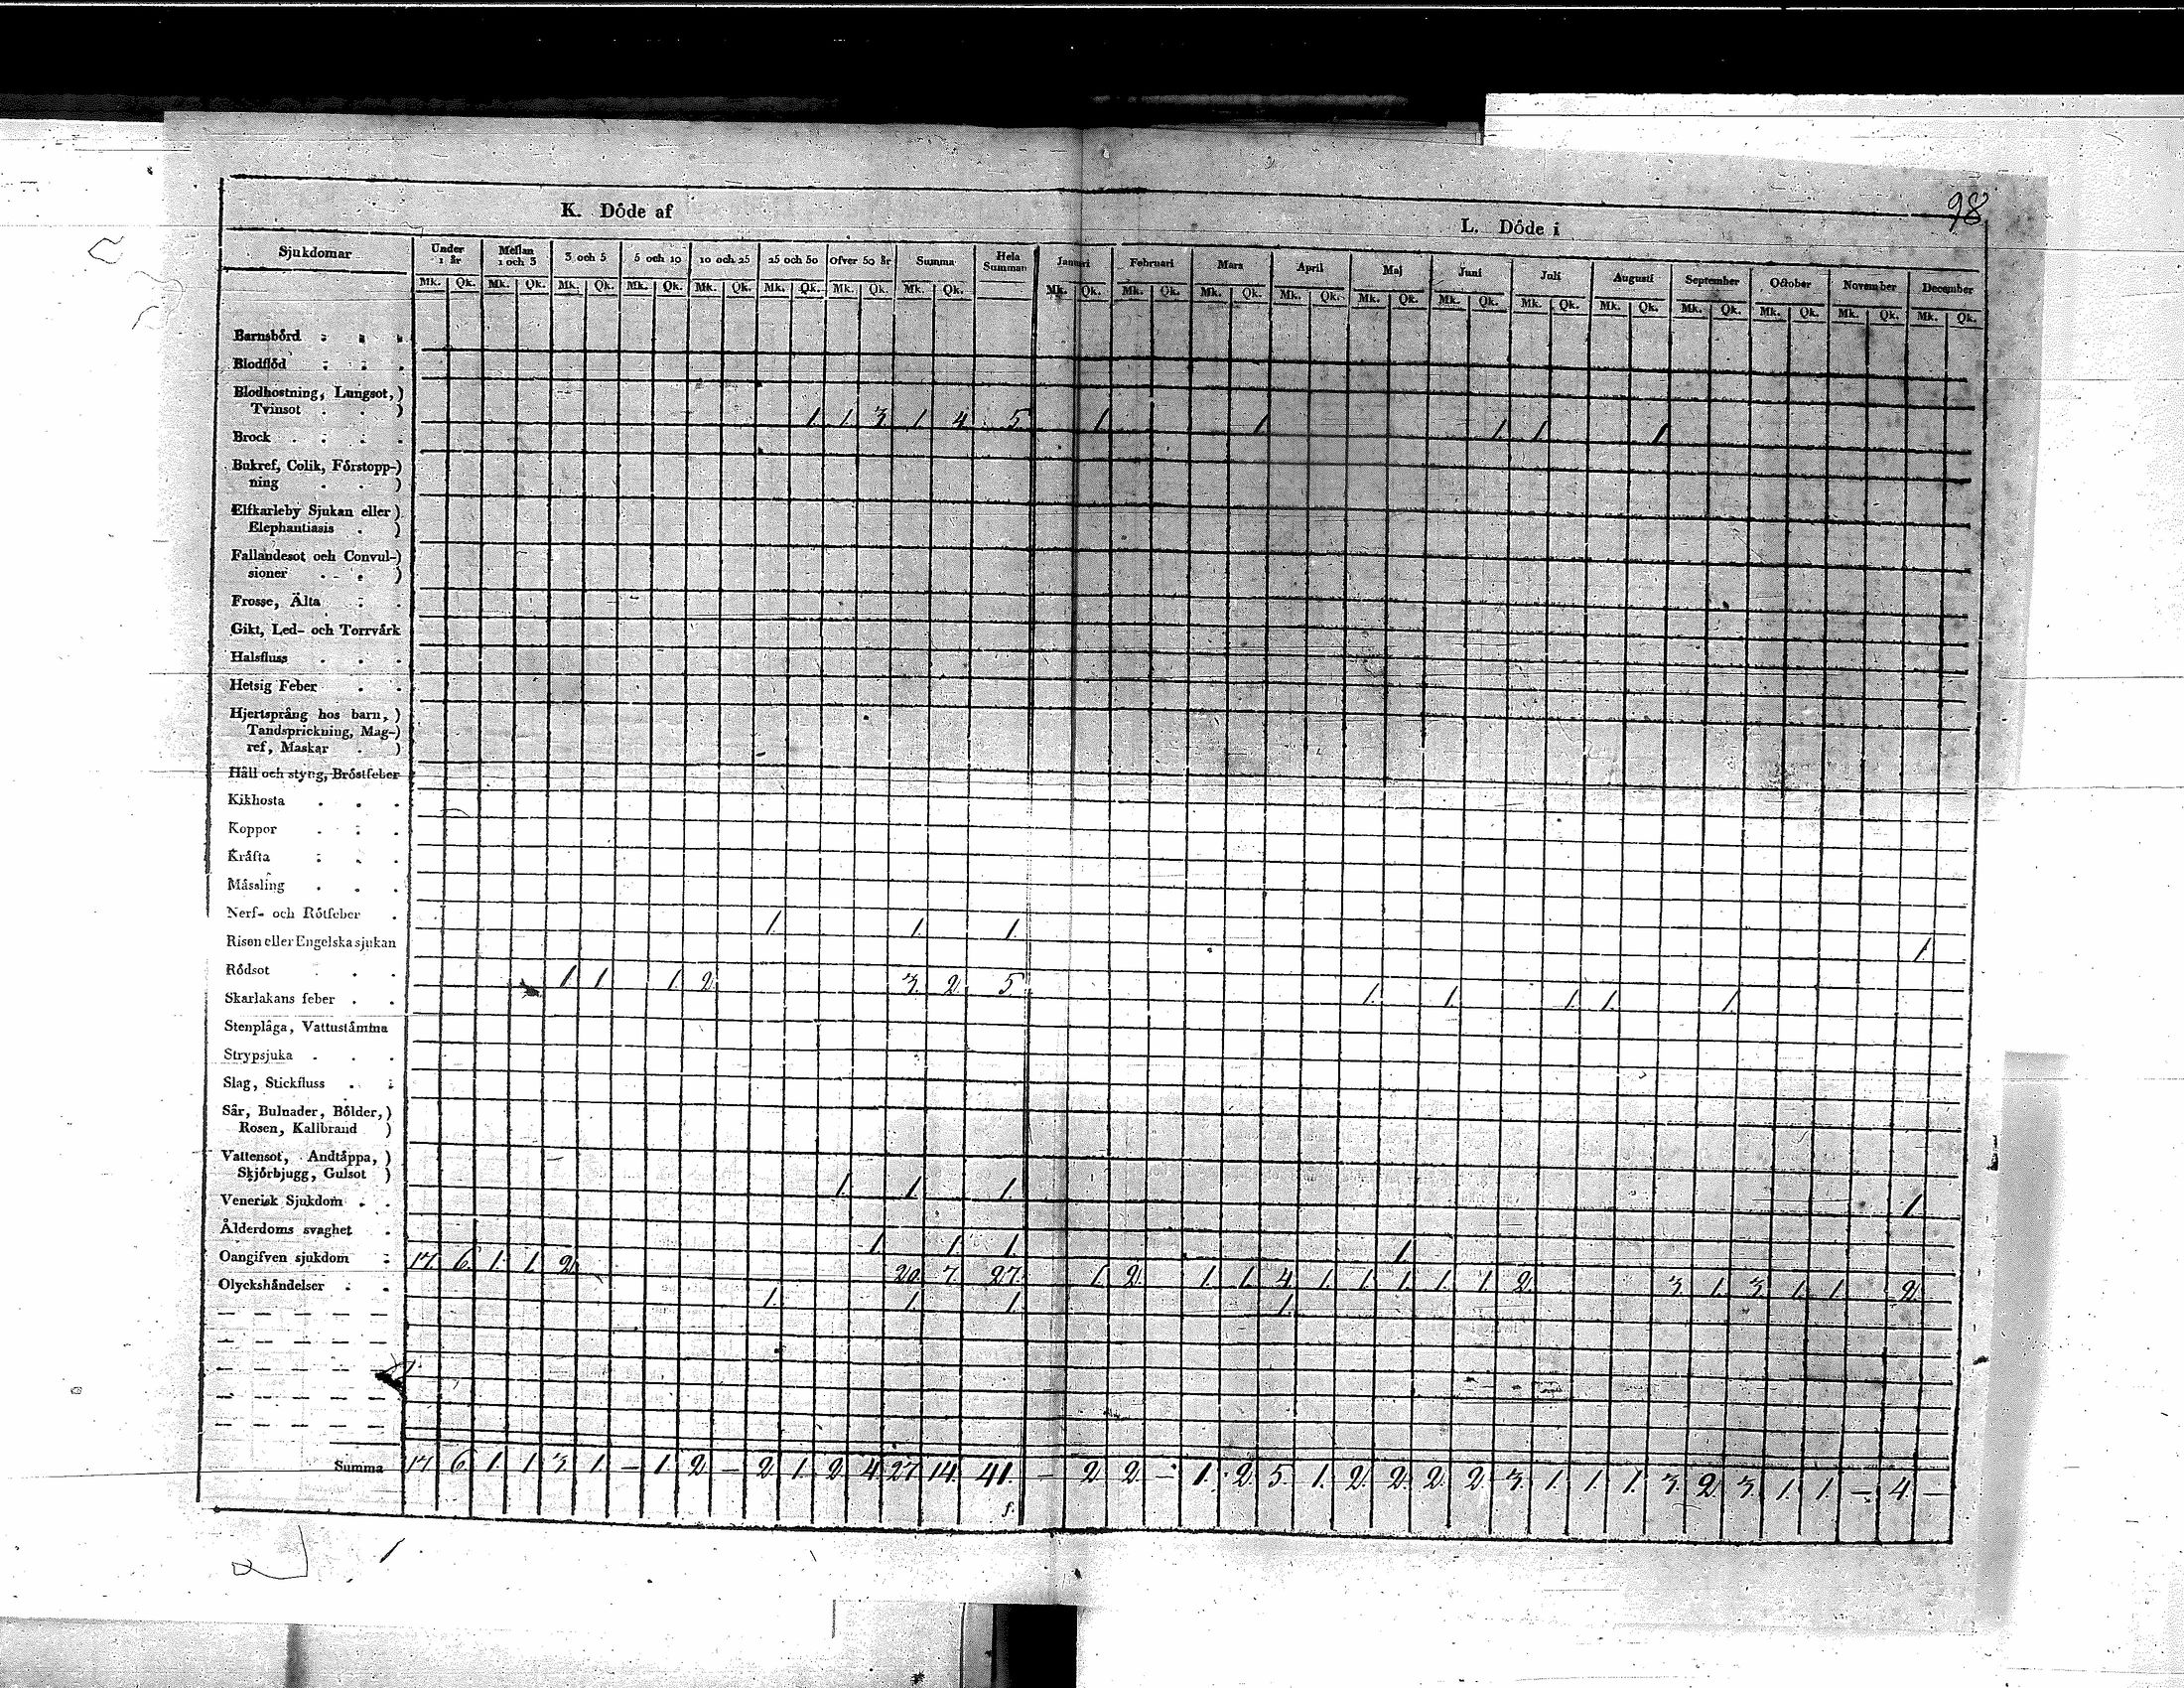 98
K. Döde af
L. Döde i
Sjukdomar Under 1 år Mellan 1 och 3 3 och 5 5 och 10 10 och 25 25 och 50 Öfver 50 år Summa Hela Summan Januari Februari Mars April Maj Juni Juli Augusti September October November December
Mk. Qk. Mk. Qk. Mk. Qk. Mk. Qk. Mk. Qk. Mk. Qk. Mk. Qk. Mk. Qk. Mk. Qk. Mk. Qk. Mk. Qk. Mk. Qk. Mk. Qk. Mk. Qk. Mk. Qk. Mk. Qk. Mk. Qk. Mk. Qk. Mk. Qk. Mk. Qk.
Barnsbörd
Blodflöd
Blodhostning, Lungsot,)
Tvinsot . . ) 1. 1 3 1 4 5 1. 1 1. 1 1
Brock
Bukref, Colik, Förstopp-)
ning . . )
Elfkarleby Sjukan eller)
Elephantiasis . )
Fallandesot och Convul-)
sioner . . )
Frosse, Älta
Gikt, Led- och Torrvärk
Halsfluss
Hetsig Feber
Hjertsprång hos barn,)
Tandsprickning, Mag-)
ref, Maskar . )
Håll och styng, Bröstfeber
Kikhosta
Koppor
Kräfta
Mässling
Nerf- och Rötfeber 1. 1. 1. 1.
Risen eller Engelska sjukan
Rödsot 1 1 1 2 3. 2. 5. 1. 1. 1. 1. 1.
Skarlakans feber
Stenplåga, Vattustämma
Strypsjuka
Slag, Stickfluss
Sår, Bulnader, Bölder,)
Rosen, Kallbrand )
Vattensot, Andtäppa,)
Skjörbjugg, Gulsot ) 1. 1. 1. 1
Venerisk Sjukdom
Ålderdoms svaghet 1. 1 1. 1.
Oangifven sjukdom 17. 6. 1. 1. 2. 20. 7. 27. 1. 2. 1. 1. 4. 1. 1. 1. 1. 1. 2. 3. 1. 3. 1. 1. 2.
Olyckshändelser 1. 1. 1. 1.
Summa 17. 6. 1. 1. 3. 1. – 1. 2. – 2. 1. 2. 4. 27. 14. 41. – 2. 2. – 1. 2. 5. 1. 2. 2. 2. 2. 3. 1. 1. 1. 3. 2. 3. 1. 1. – 4. –